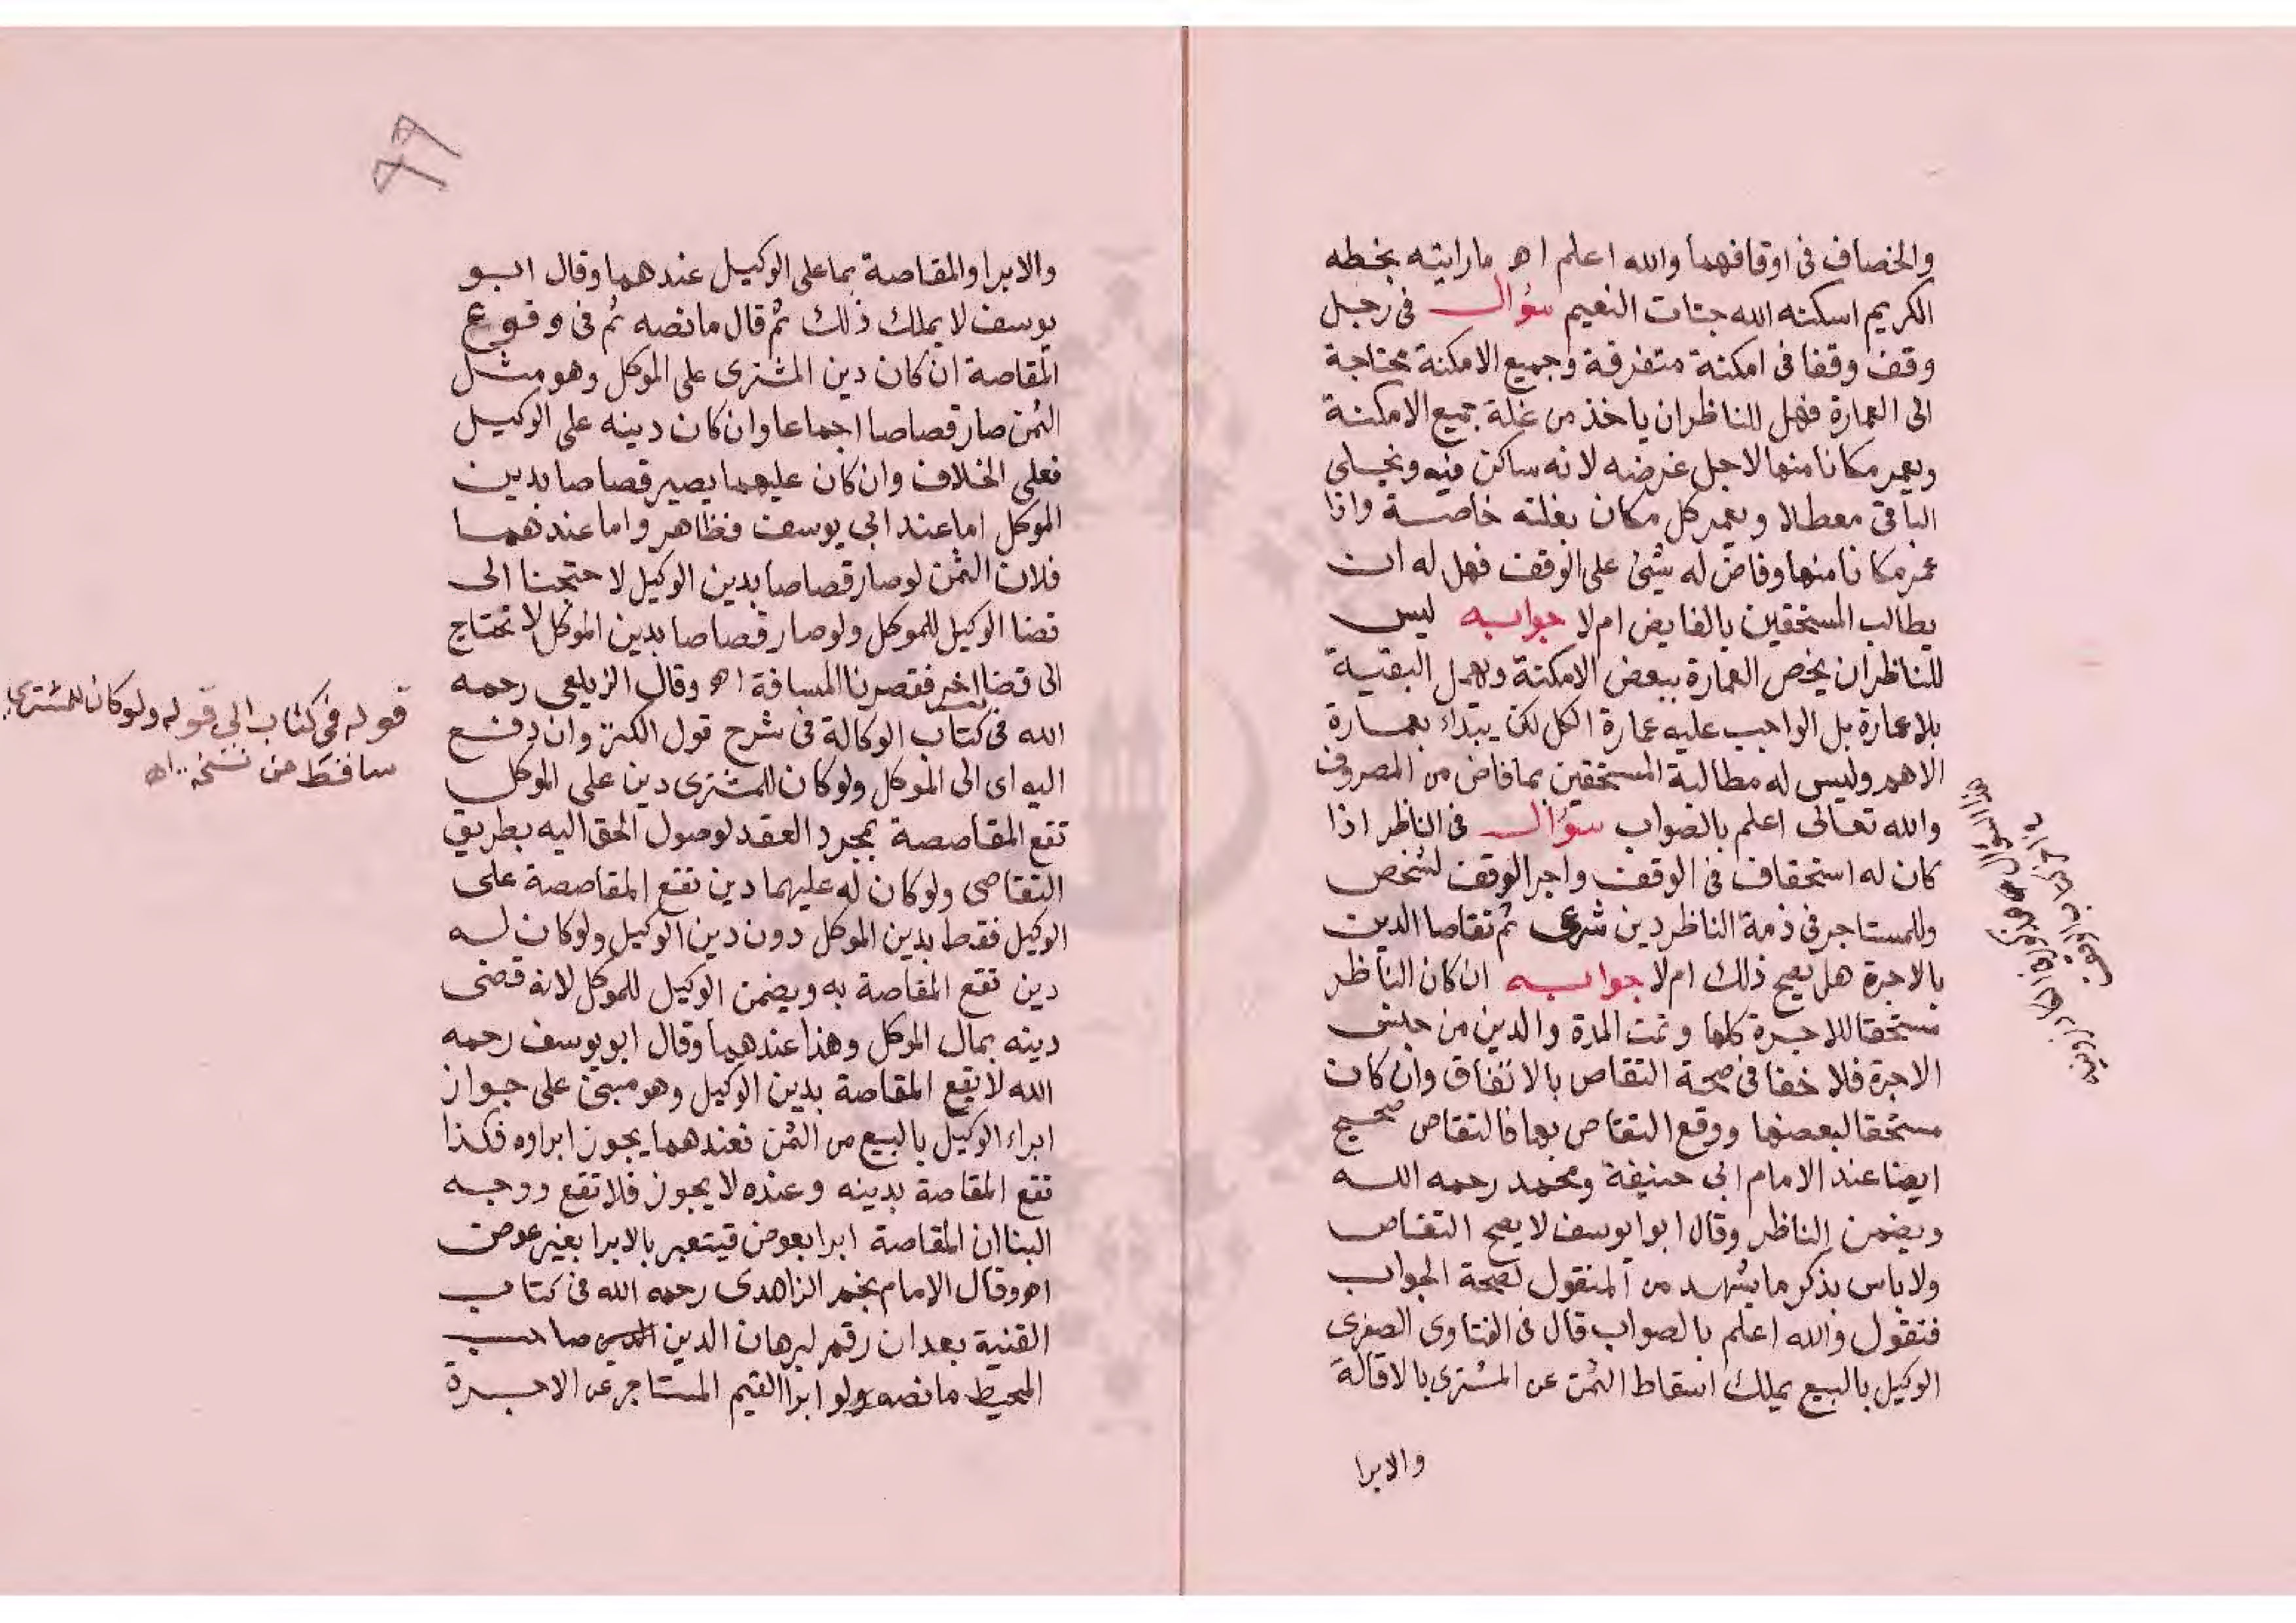 والخصاف في اوقافهما والله اعلم اه ما رايته بخطه
الكريم اسكنه الله جنات النعيم سؤال في رجل
وقف وقفا في امكنة متفرقة وجميع الامكنة محتاجة
الى العمارة فهل للناظر ان ياخذ من غلة جميع الامكنة
ويعمر مكانا منها لاجل غرضه لانه ساكن فيه ويخلى
الباقي معطلا ويعمر كل مكان بغلته خاصة واذا
عمر مكانا منها وفاض له شئ على الوقف فهل له ان
يطالب المستحقين بالفايض ام لا جوابه ليس
للناظر ان يخص العمارة ببعض الامكنة ويهمل البقية
بلا عمارة بل الواجب عليه عمارة الكل لكن يبتداء بعمارة
الاهم وليس له مطالبة المستحقين بما فاض من المصروف
والله تعالى اعلم بالصواب سؤال في الناظر اذا
كان له استحقاق في الوقف واجر الوقف لشخص
وللمستاجر في ذمة الناظر دين شرعى ثم تقاصا الدين
بالاجرة هل يصح ذلك ام لا جوابه ان كان الناظر
مستحقا للاجرة كلها وتمت المدة والدين من جنس
الاجرة فلا خفا في صحة التقاص بالاتفاق وان كان
مستحقا لبعضها ووقع التقاص بها فالتقاص صحيح
ايضا عند الامام ابي حنيفة ومحمد رحمه الله
ويضمن الناظر وقال ابو ابوسف لا يصح التقاص
ولا باس بذكر ما يشهد من المنقول لصحة الجواب
فنقول والله اعلم بالصواب قال في الفتاوى الصغرى
الوكيل بالبيع يملك اسقاط الثمن عن المشترى بالاقالة
والابرا
هذا السوال
77
والابرا والمقاصة بما على الوكيل عندهما وقال ابو
يوسف لا يملك ذلك ثم قال ما نصه ثم في وقوع
المقاصة ان كان دين المشترى على الموكل وهو مثل
الثمن صار قصاصا اجماعا وان كان دينه على الوكيل
فعلى الخلاف وان كان عليهما يصير قصاصا بدين
الموكل اما عند ابي يوسف فظاهر واما عندهما
فلان الثمن لو صار قصاصا بدين الوكيل لاحتجنا الى
قضا الوكيل للموكل ولو صار قصاصا بدين الموكل لا نحتاج
الى قضا اخر فقصرنا المسافة اه وقال الزيلعى رحمه
الله في كتاب الوكالة في شرح قول الكنز وان دفع
اليه اى الى الموكل ولو كان للمشترى دين على الموكل
تقع المقاصصة بمجرد العقد لوصول الحق اليه بطريق
التقاصى ولو كان له عليهما دين تقع المقاصصة على
الوكيل فقصا بدين الموكل دون دين الوكيل ولو كان له
دين تقع المقاصة به ويضمن الوكيل للموكل لانه قضى
دينه بمال الموكل وهذا عندهما وقال ابو يوسف رحمه
الله لا تقع المقاصة بدين الوكيل وهو مبنى على جواز
ابراء الوكيل بالبيع من الثمن فعندهما يجوز ابراوه فكذا
تقع المقاصة بدينه وعنده لا يجوز فلا تقع ووجه
البنا ان المقاصة ابرا بعوض فيتعبر بالابرا بغير عوض
اه وقال الامام نجم الزاهدى رحمه الله في كتاب
القنية بعد ان رقم لبرهان الدين صاحب
المحيط ما نصه ولو ابرا القيم المستاجر عن الاجرة
قوله في كتاب الى قوله ولو كان للمشترى
ساقط من نسخه اه